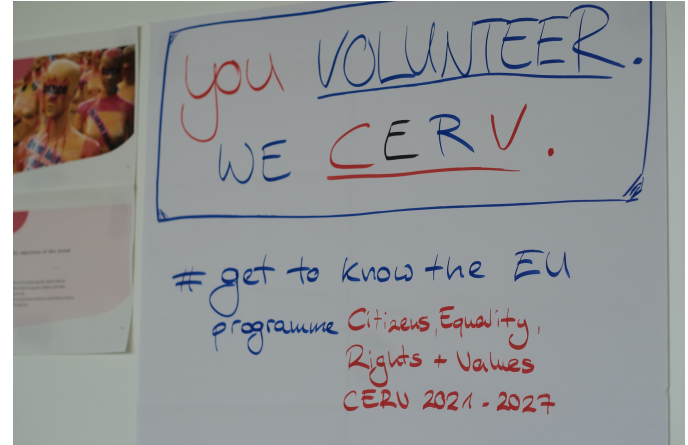 you VOLUNTEER.
WE CERV.
# get to know the EU
programme Citizens, Equality,
Rights + Values
CERV 2021 - 2027